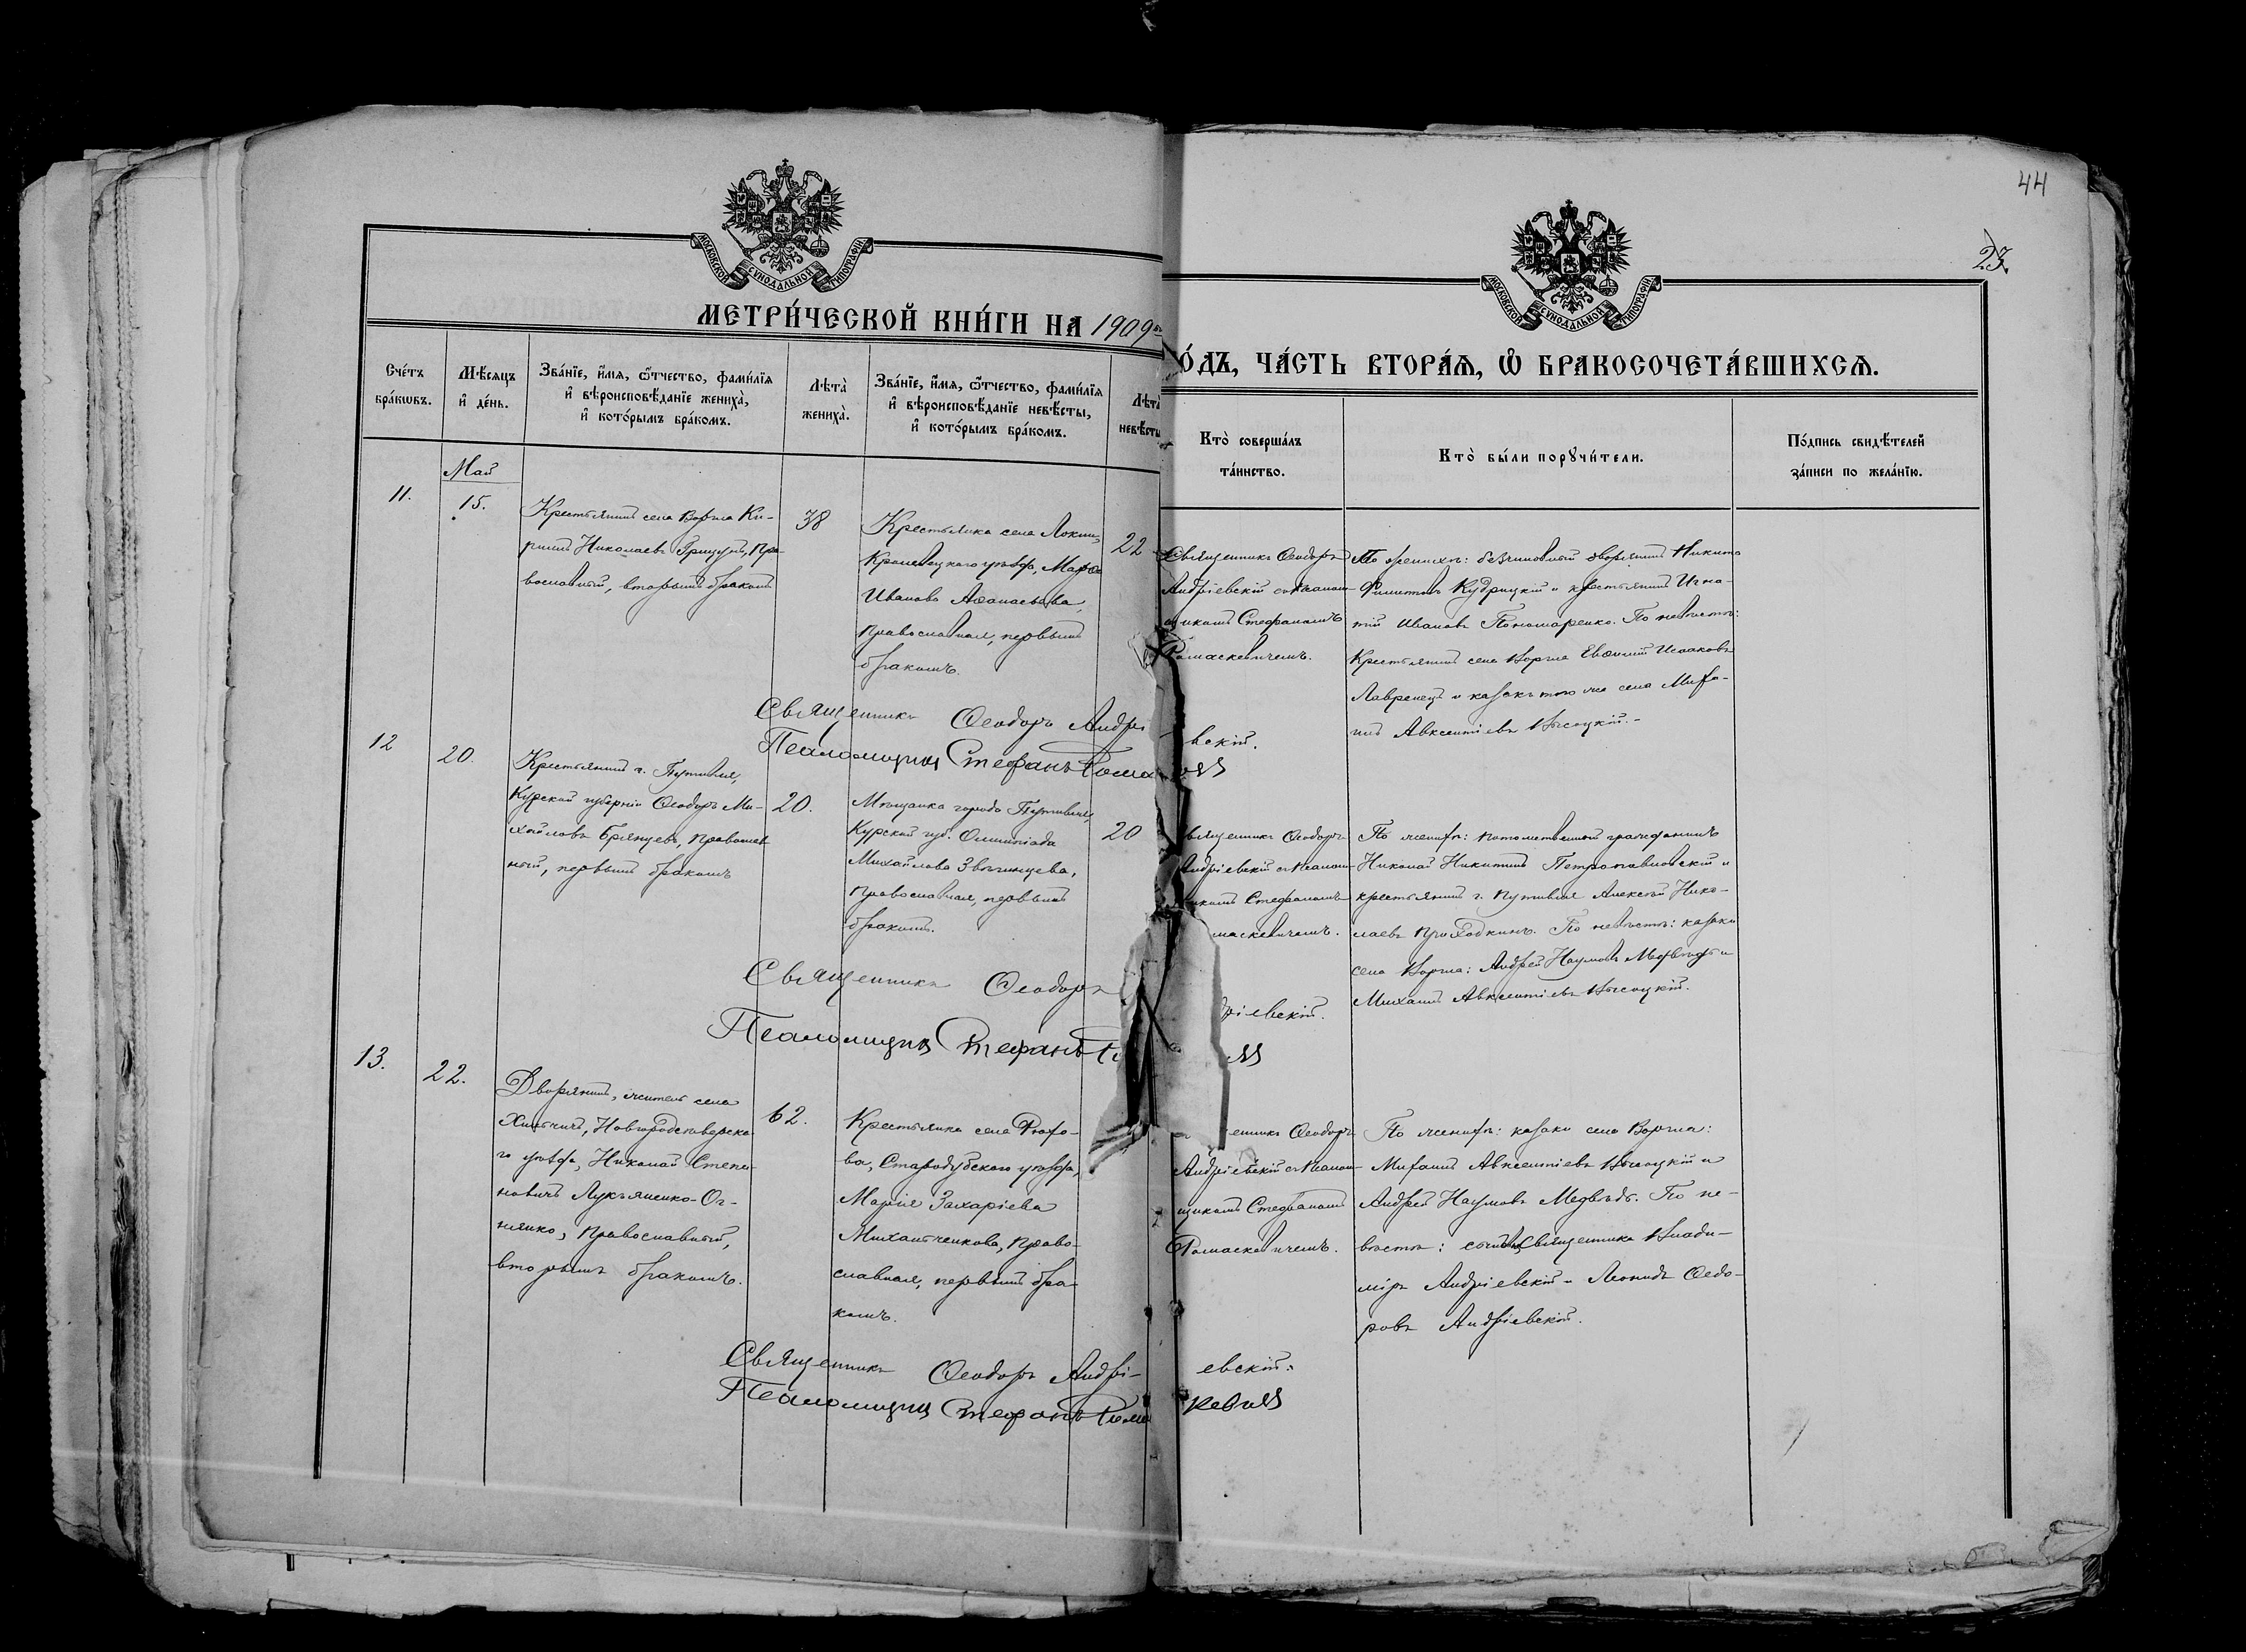 44
23
МОСКОВСКОЙ СѴНОДАЛЬНОЙ ТИПОГРАФІИ
МОСКОВСКОЙ СѴНОДАЛЬНОЙ ТИПОГРАФІИ
МЕТРИ́ЧЕСКОЙ КНИ́ГИ НА 1909
О́ДЪ, ЧА́СТЬ ВТОРА́Я, Ѽ БРАКОСОЧЕТА́ВШИХСЯ.
Сче́тъ
бра́кѡвъ.
Мѣ́сяцъ
и҆ де́нь.
Зва́нїе, и҆́мя, ѻ҆́тчество, фами́лїя
и҆ вѣроисповѣ́данїе жениха̀,
и҆ кото́рымъ бра́комъ.
Лѣта̀
жениха̀.
Зва́нїе, и҆́мя, ѻ҆́тчество, фами́лїя
и҆ вѣроисповѣ́данїе невѣ́сты,
и҆ кото́рымъ бра́комъ.
Лѣта̀
невѣ́сты
Кто̀ соверша́лъ
та́инство.
Кто̀ бы́ли порꙋчи́тели.
По́дпись свидѣ́телей
за́писи по жела́нїю.
Май
11.
15.
Крестьянинъ села Воргла Ки-
риллъ Николаевъ Грицунъ, Пра-
вославный, вторымъ бракомъ
38
Крестьянка села Локни,
Кролевецкаго уѣзда, Марѳа
Иванова Аѳанасьева,
Православная, первымъ
бракомъ.
22
Священникъ Ѳеодоръ
Андріевскій съ Псалом-
щикомъ Стефаномъ
Ромаскевичемъ.
По женихѣ: безчиновный дворянинъ Никита
Кудрицкій и крестьянинъ Игна-
тій Ивановъ Пономаренко. По невѣстѣ:
Крестьянинъ села Воргла Евѳимій Исааковъ
Лавренецъ и казакъ того же села Миха-
илъ Авксентіевъ Высоцкій.-
Священникъ Ѳеодоръ Андрі вскій.
Псаломщикъ Стефанъ Рома
12
20.
Крестьянинъ г. Путивля,
Курской губерніи Ѳеодоръ Ми-
хайловъ Брянцевъ, Православ
ный, первымъ бракомъ
20.
Мѣщанка города Путивля,
Курской губ. Олимпіада
Михайлова Звягинцева,
Православная, первымъ
бракомъ.
20
вященникъ Ѳеодоръ
Андріевскій съ Псалом-
щикомъ Стефаномъ
маскевичемъ.
По женихѣ: потомственный гражданинъ
Николай Никитинъ Петропавловскій и
крестьянинъ г. Путивля Алексѣй Нико-
лаевъ Проходкинъ. По невѣстѣ: казаки
села Воргла: Андрей Наумовъ Медвѣдь и
Михаилъ Авксентіевъ Высоцкій.
Священникъ Ѳеодоръ дріевскій.
Псаломщикъ Стефанъ
13.
22.
Дворянинъ, житель села
Хильчичъ, Новгородсѣверска-
го уѣзда, Николай Степа-
новичъ Лукьяненко-Ог-
ніянко, Православный,
вторымъ бракомъ.
62.
Крестьянка села
Стародубскаго уѣзда,
Марія Захаріева
Михальченкова, Право-
славная, первымъ бра-
комъ.
енникъ Ѳеодоръ
Андріевскій съ Псалом-
щикомъ Стефаномъ
Ромаскевичемъ.
По женихѣ: казаки села Воргла:
Михаилъ Авксентіевъ Высоцкій и
Андрей Наумовъ Медвѣдь. По не-
вѣстѣ: священника Влади-
міръ Андріевскій и Леонидъ Ѳедо-
ровъ Андріевскій.
Священникъ Ѳеодоръ Андрі- евскій.
Псаломщикъ Стефанъ Рома кевичъ